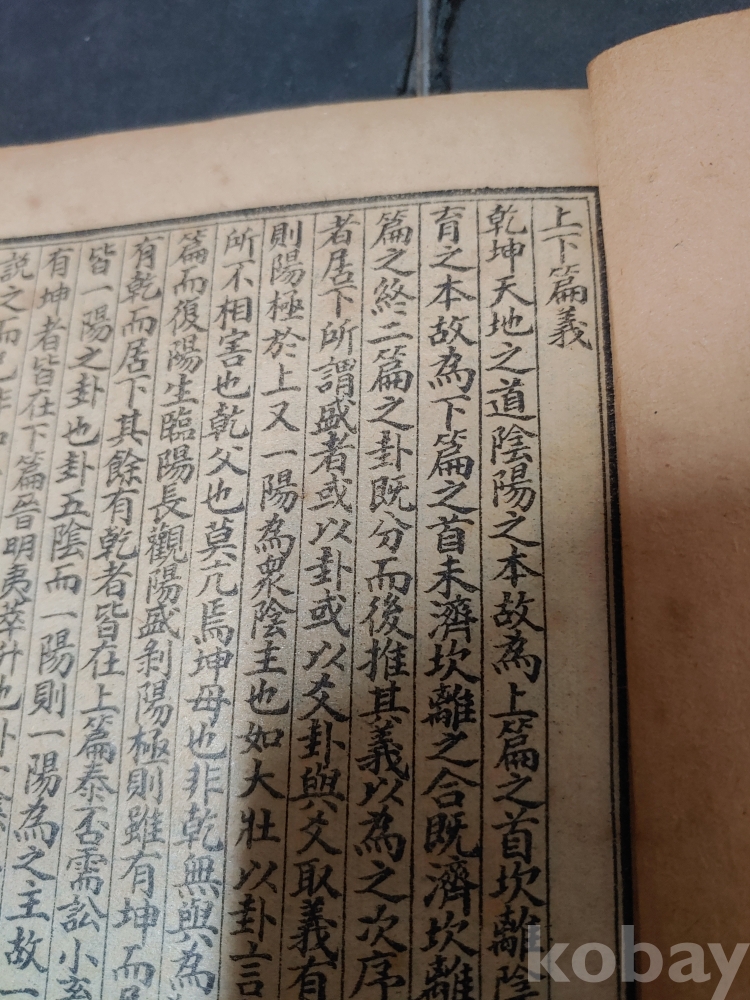 上下篇義
乾坤天地之道陰陽之本故為上篇之首坎離陰
育之本故為下篇之首未濟坎離之合既濟坎離
篇之終二篇之卦既分而後推其義以為之次序
者居下所謂盛者或以卦或以爻卦與爻取義有
則陽極於上又一陽為衆陰主也如大壯以卦言
所不相害也乾父也莫亢焉坤母也非乾無與為
篇而復陽生臨陽長觀陽盛剝陽極則雖有坤而居
有乾而居下其餘有乾者皆在上篇泰否需訟小畜
皆一陽之卦也卦五陰而一陽則一陽為之主故一
有坤者皆在下篇晉明夷萃升也卦一陰
說之而已非如
kobay